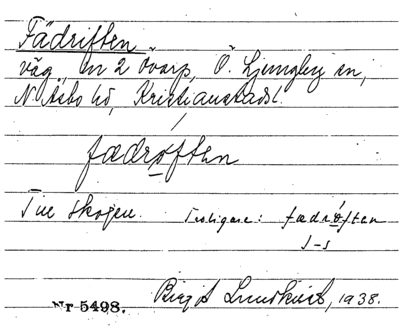 Fädriften
väg, nr 2 Övarp, Ö. Ljungby sn,
N. Åsbo hd, Kristianstads l.
fædrɷften
Till skogen. Troligare: fædrɷften
J-s
Nr 5498. Birgit Lundkvist, 1938.